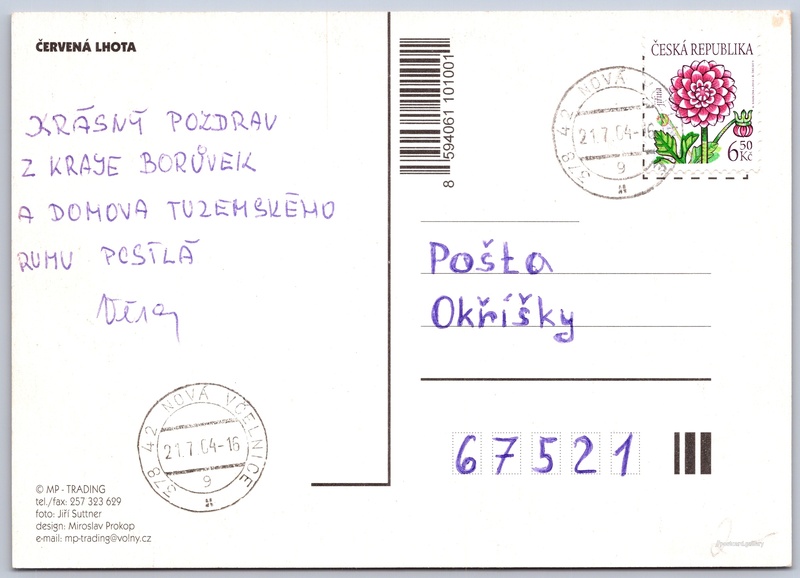 ČERVENÁ LHOTA
KRÁSNÝ POZDRAV
Z KRAJE BORŮVEK
A DOMOVA TUZEMSKÉHO
RUMU POSÍLÁ
Věra
378 42 NOVÁ VČELNICE
21.7.04-16
9
© MP - TRADING
tel./fax: 257 323 629
foto: Jiří Suttner
design: Miroslav Prokop
e-mail: mp-trading@volny.cz
8 594061 101001
378 42 NOVÁ
21.7.04-16
9
ČESKÁ REPUBLIKA
jiřina
6 50 Kč
Pošta
Okříšky
67521